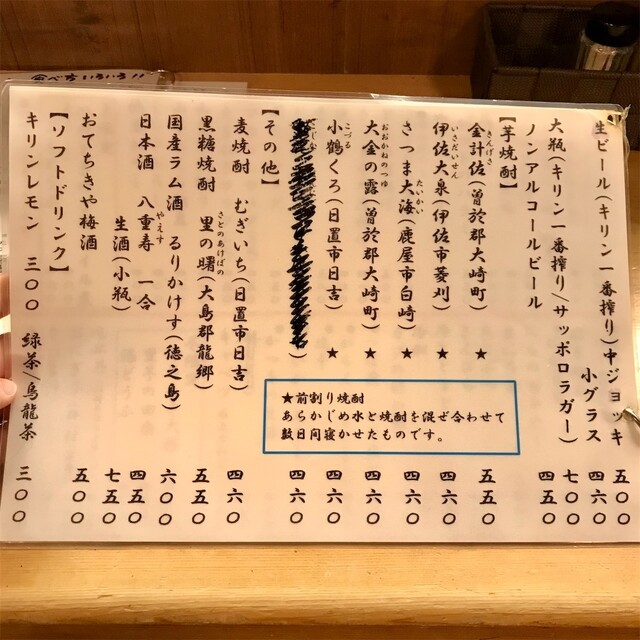 食べちいきいき!!
生ビール(キリン一番搾り)中ジョッキ 五〇〇
小グラス 四六〇
大瓶(キリン一番搾り/サッポロラガー) 七〇〇
ノンアルコールビール 四五〇
【芋焼酎】
金計佐(曽於郡大崎町) ★ 五五〇
きんげさ
伊佐大泉(伊佐市菱刈) ★ 四六〇
いさだいせん
さつま大海(鹿屋市白崎) ★ 四六〇
たいかい
大金の露(曽於郡大崎町) ★ 四六〇
おおがねのつゆ
小鶴くろ(日置市日吉) ★ 四六〇
こづる
) 四六〇
【その他】
麦焼酎 むぎいち(日置市日吉) 四六〇
黒糖焼酎 里の曙(大島郡龍郷) 五五〇
さとのあけぼの
国産ラム酒 るりかけす(徳之島) 六〇〇
日本酒 八重寿 一合 四五〇
やえす
生酒(小瓶) 七五〇
おてちきや梅酒 五〇〇
【ソフトドリンク】
キリンレモン 三〇〇 緑茶/烏龍茶 三〇〇
★前割り焼酎
あらかじめ水と焼酎を混ぜ合わせて
数日间寝かせたものです。